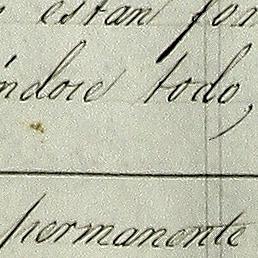 estan for
ndose todo,
permanente